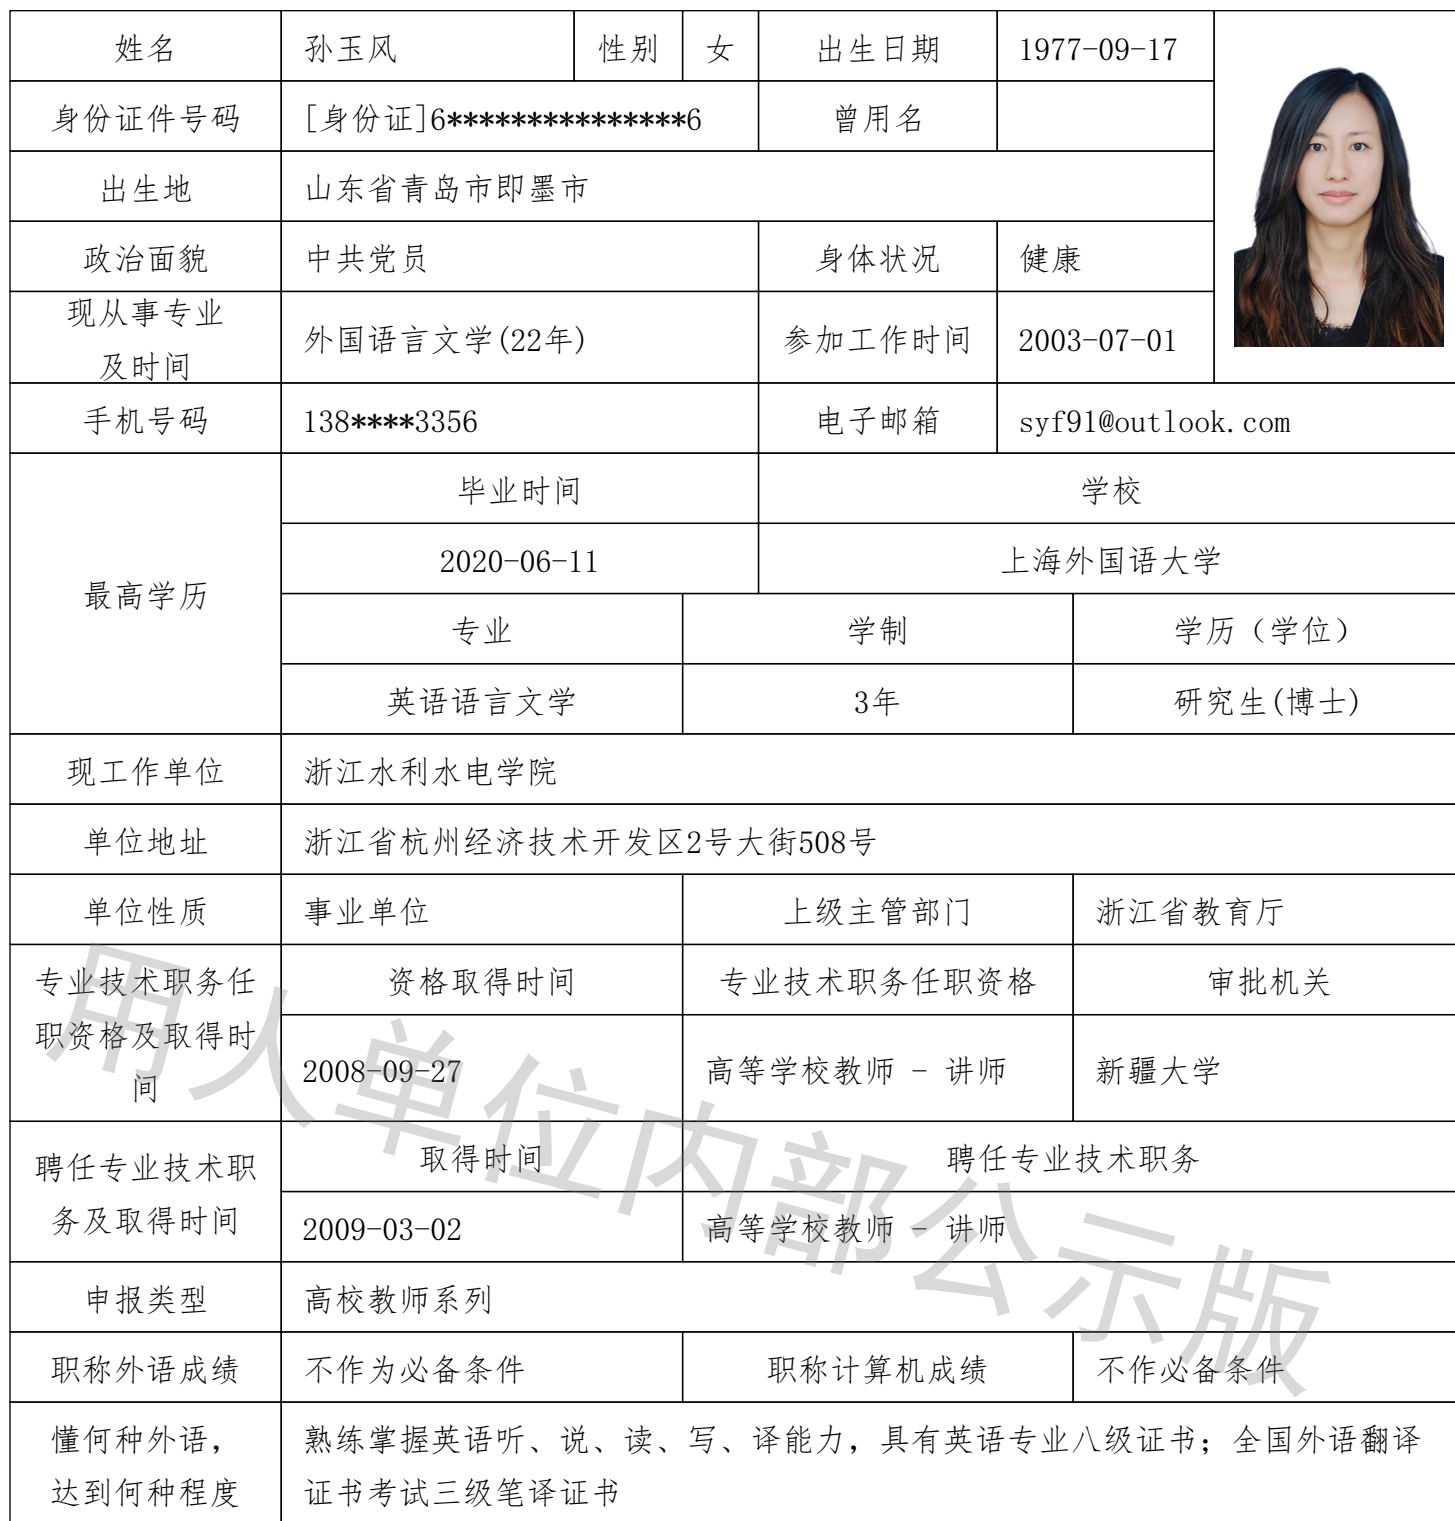 姓名 孙玉风 性别 女 出生日期 1977-09-17
身份证件号码 [身份证]6***************6 曾用名
出生地 山东省青岛市即墨市
政治面貌 中共党员 身体状况 健康
现从事专业
及时间 外国语言文学(22年) 参加工作时间 2003-07-01
手机号码 138****3356 电子邮箱 syf91@outlook.com
最高学历
毕业时间 学校
2020-06-11 上海外国语大学
专业 学制 学历（学位）
英语语言文学 3年 研究生(博士)
现工作单位 浙江水利水电学院
单位地址 浙江省杭州经济技术开发区2号大街508号
单位性质 事业单位 上级主管部门 浙江省教育厅
专业技术职务任
职资格及取得时
间
资格取得时间 专业技术职务任职资格 审批机关
2008-09-27 高等学校教师 - 讲师 新疆大学
聘任专业技术职
务及取得时间
取得时间 聘任专业技术职务
2009-03-02 高等学校教师 - 讲师
申报类型 高校教师系列
职称外语成绩 不作为必备条件 职称计算机成绩 不作必备条件
懂何种外语，
达到何种程度
熟练掌握英语听、说、读、写、译能力，具有英语专业八级证书；全国外语翻译
证书考试三级笔译证书
用人单位内部公示版